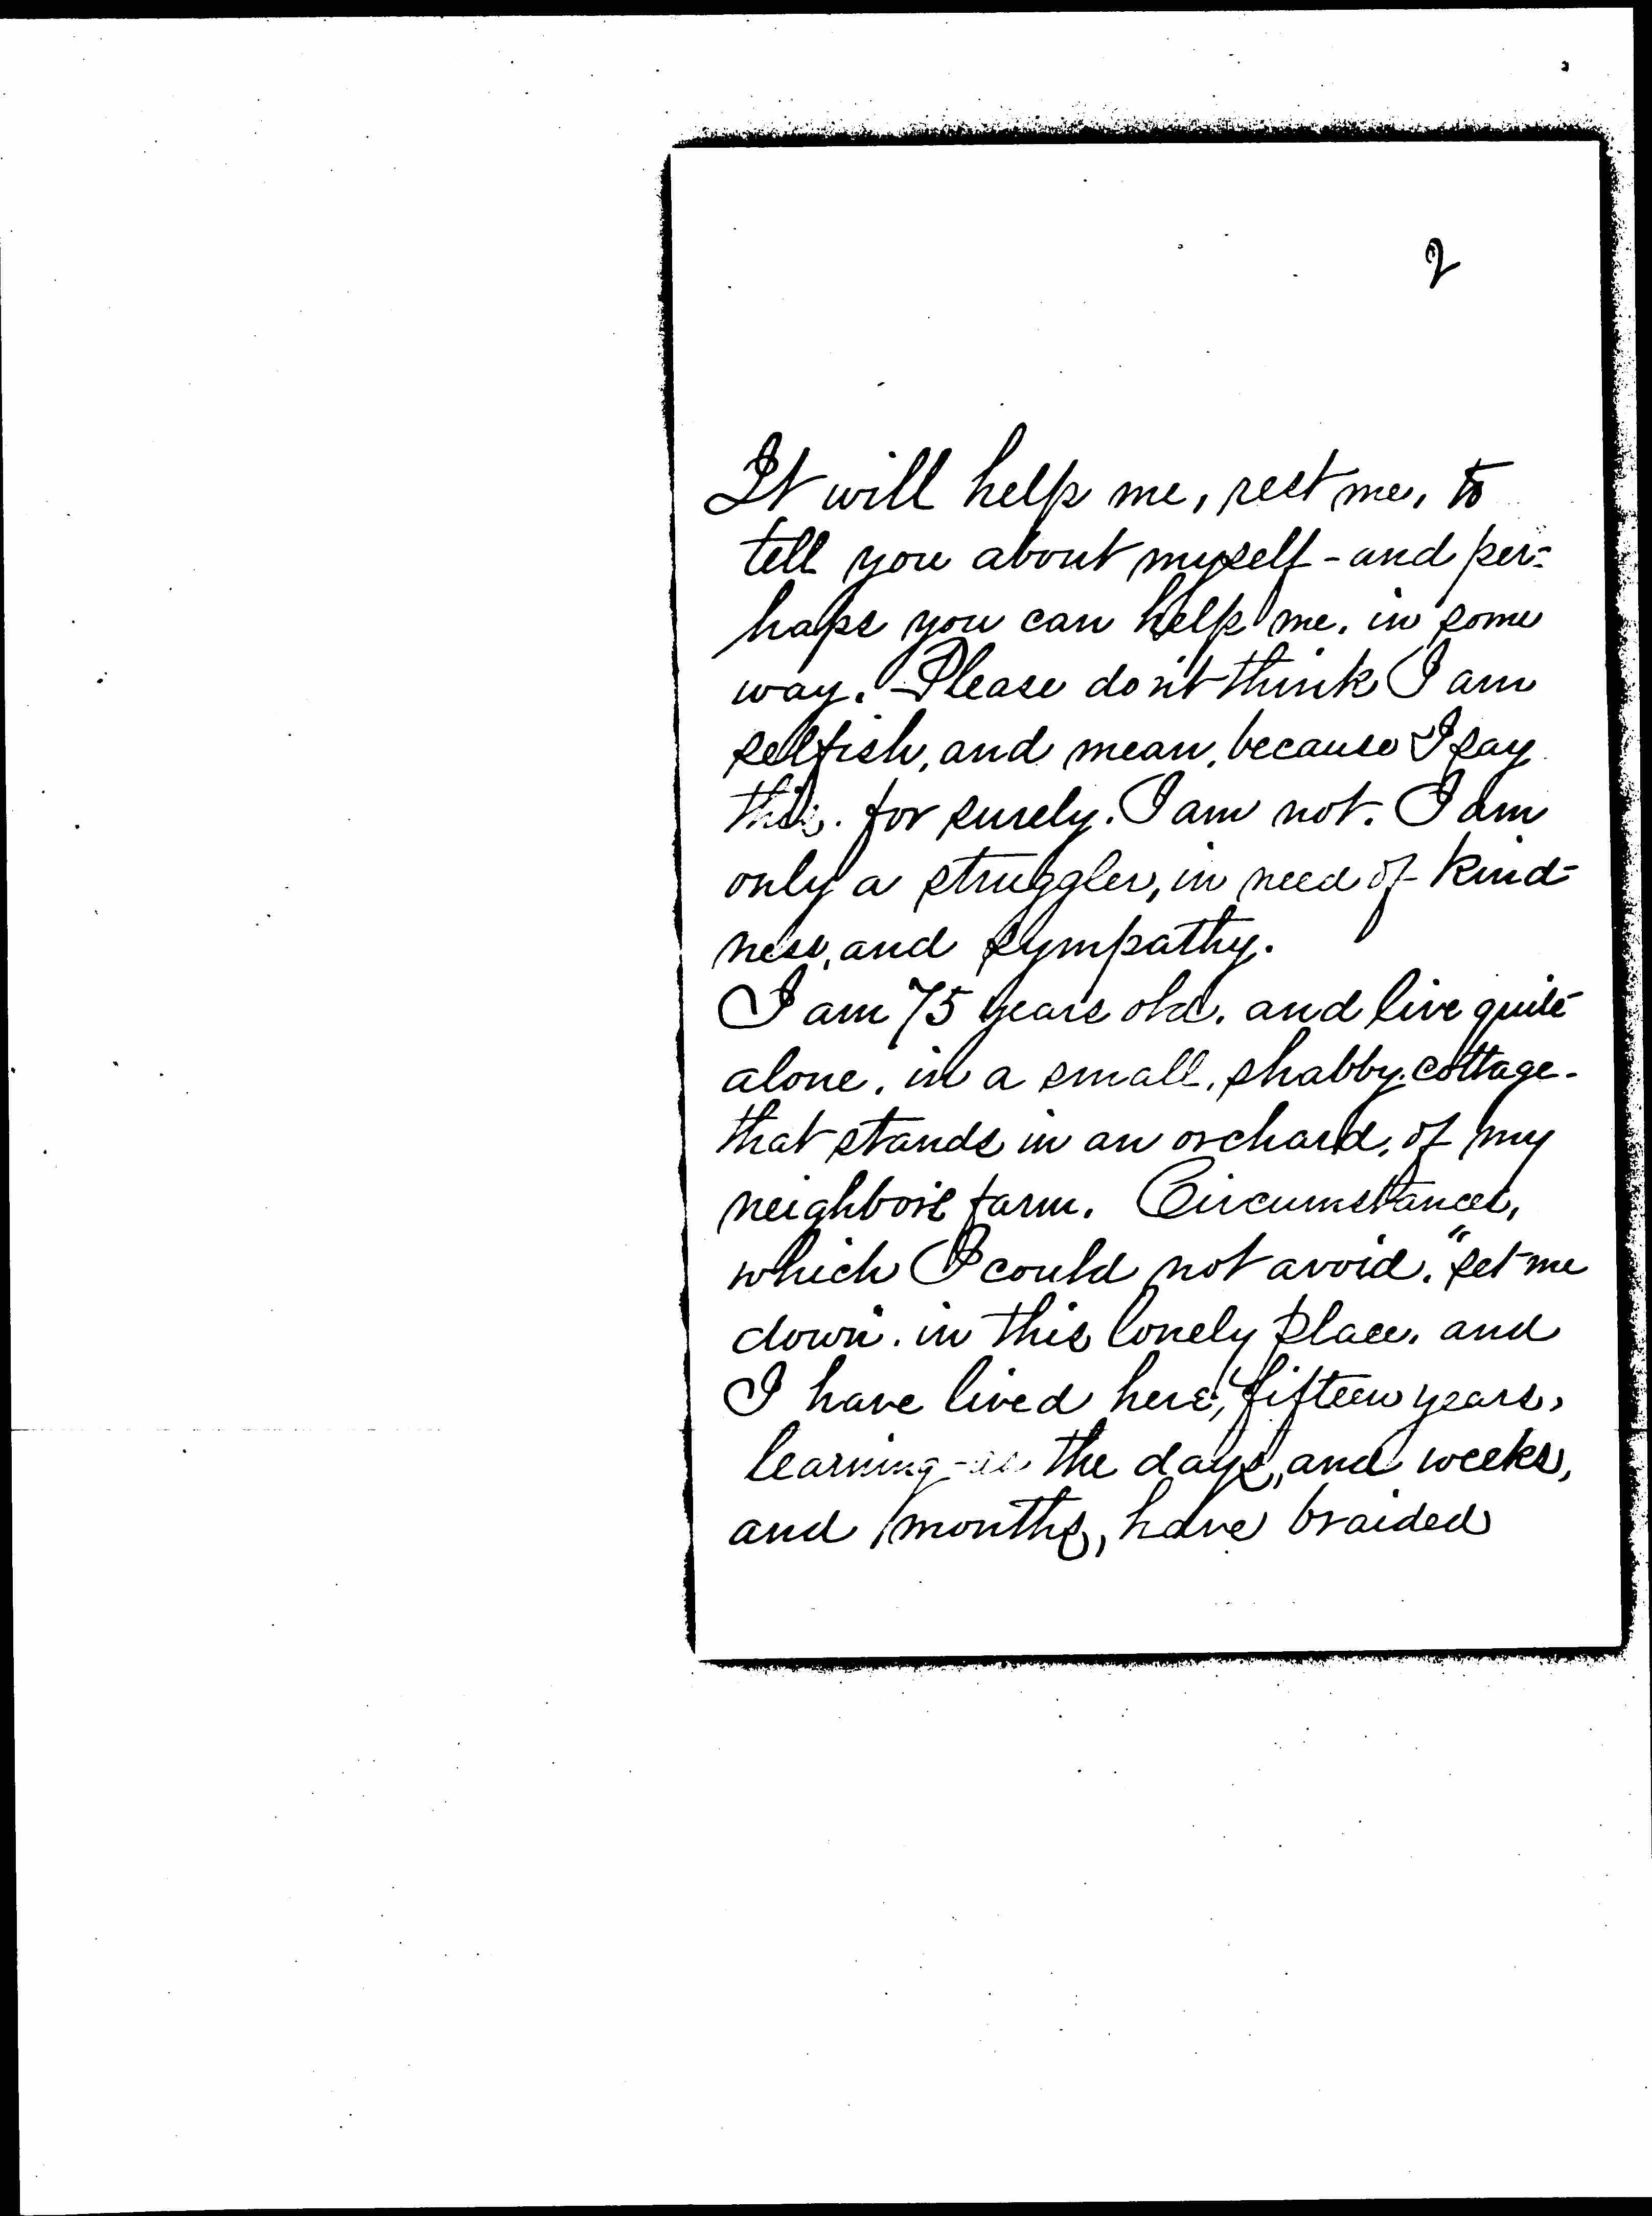 2
It will help me, rest me, to
tell you about myself - and per=
haps you can help me. in some
way. Please don't think I am
selfish, and mean, because I say
this. for surely. I am not. I am
only a struggler, in need of kind=
ness, and sympathy.
I am 75 years old. and live quite
alone. in a small, shabby cottage -
that stands in an orchard, of my
neighbors farm. Circumstances,
which I could not avoid. "set me
down. in this lonely place. and
I have lived here, fifteen years,
learning - as the days, and weeks,
and months, have braided